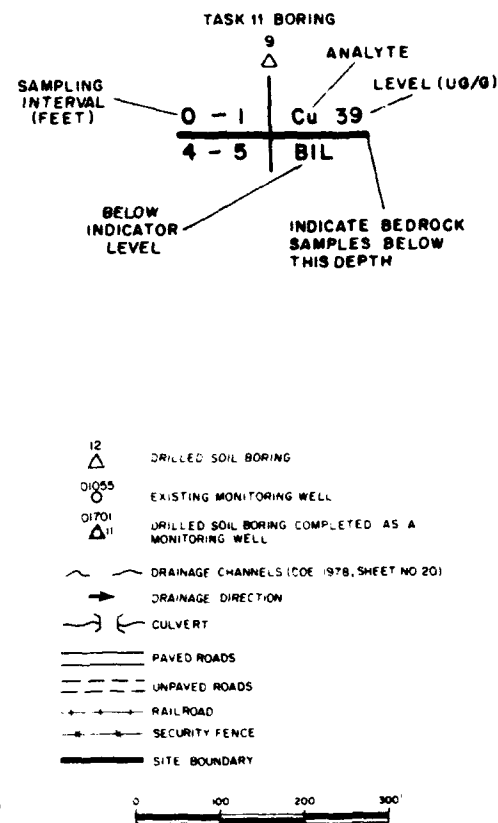 TASK 11 BORING
9
ANALYTE
SAMPLING
INTERVAL
(FEET)
LEVEL (UG/G)
0 - 1 Cu 39
4 - 5 BIL
BELOW
INDICATOR
LEVEL
INDICATE BEDROCK
SAMPLES BELOW
THIS DEPTH
12
DRILLED SOIL BORING
01055
EXISTING MONITORING WELL
01701
11
DRILLED SOIL BORING COMPLETED AS A
MONITORING WELL
DRAINAGE CHANNELS (COE 1978, SHEET NO 20)
DRAINAGE DIRECTION
CULVERT
PAVED ROADS
UNPAVED ROADS
RAILROAD
SECURITY FENCE
SITE BOUNDARY
0 100 200 300'